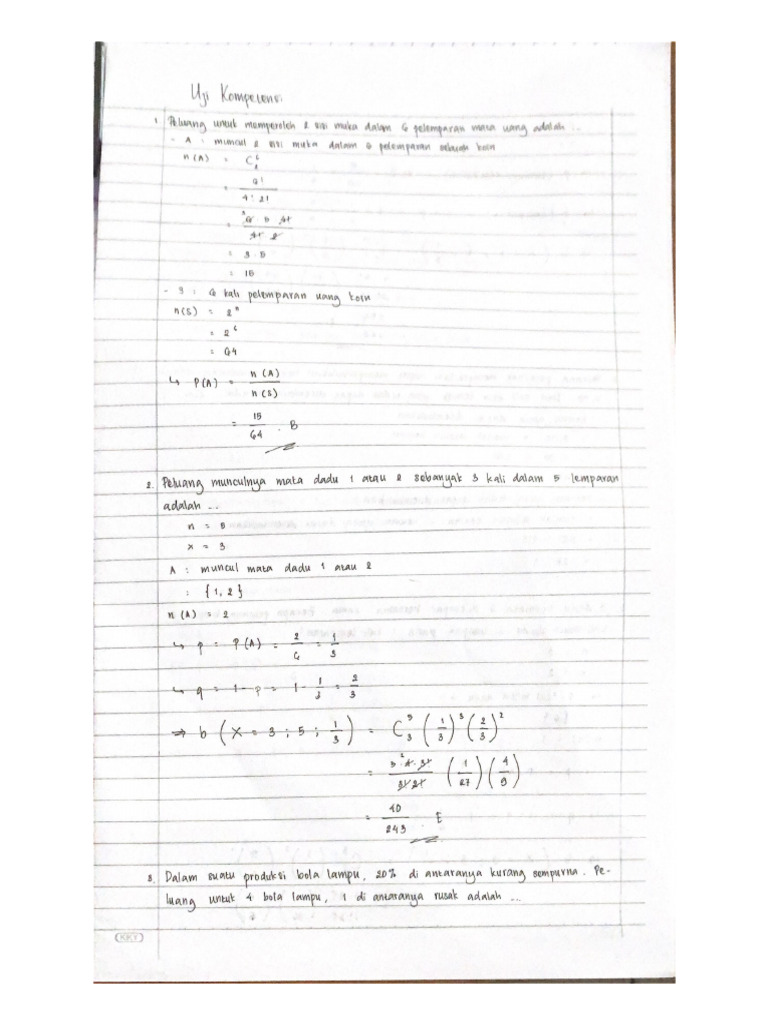 Uji Kompetensi
1. Peluang untuk memperoleh 2 sisi muka dalam 6 pelemparan mata uang adalah ...
- A : muncul 2 sisi muka dalam 6 pelemparan sebuah koin
n (A) = C⁶₂
= 6! / 4! 2!
= 6 · 5 · 4! / 4! · 2
= 3 · 5
= 15
- S : 6 kali pelemparan uang koin
n (S) = 2ⁿ
= 2⁶
= 64
↳ P(A) = n (A) / n (S)
= 15 / 64 . B
2. Peluang munculnya mata dadu 1 atau 2 sebanyak 3 kali dalam 5 lemparan
adalah ...
n = 5
x = 3
A : muncul mata dadu 1 atau 2
: {1, 2}
n (A) = 2
↳ p = P(A) = 2/6 = 1/3
↳ q = 1 - p = 1 - 1/3 = 2/3
⇒ b (X = 3 ; 5 ; 1/3) = C⁵₃ (1/3)³ (2/3)²
= 5 · 4 · 3! / 3! 2! (1/27) (4/9)
= 40 / 243 . E
3. Dalam suatu produksi bola lampu, 20% di antaranya kurang sempurna. Pe-
luang untuk 4 bola lampu, 1 di antaranya rusak adalah ...
KKY